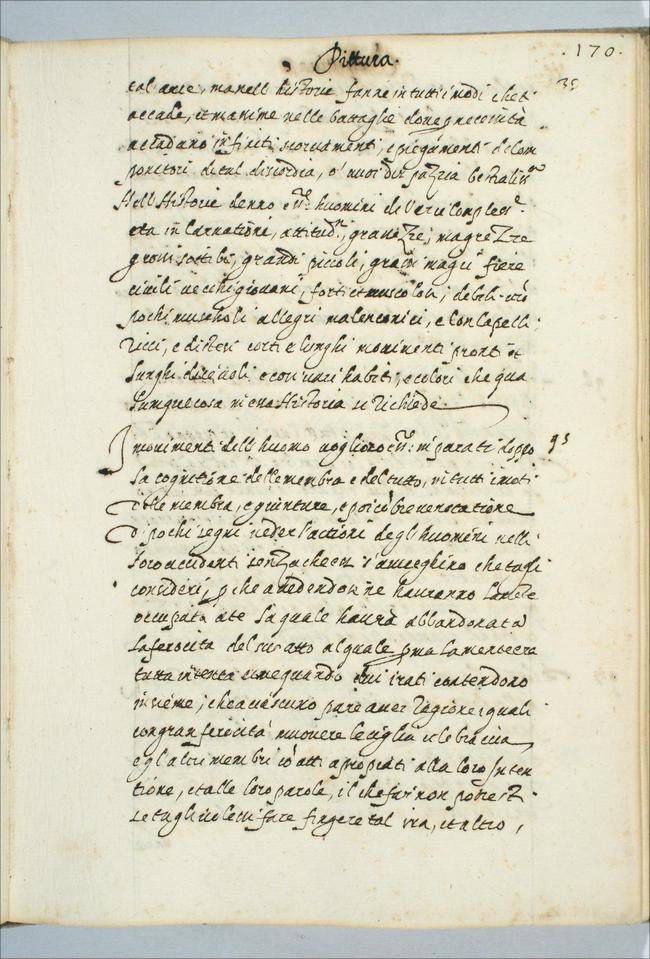 Pittura.
.170.
35
tal arte, ma nell' historie fanne in tutti i modi che t'
accade, et massime nelle battaglie dove p necessità
accadano infiniti scorciamenti, e piegamenti de com
ponitori di tal discordia, o' vuoi dir pazzia bestialiss.ma
Nell'Historie denno huomini di varie comples.
età incarnationi, attitud.ni, grassezze, magrezze
grossi sottili, grandi piccoli, grassi magri fieri
civili vecchi giovani, forti et muscolosi, deboli
pochi muscholi allegri malenconici, e con capelli
ricci, e distesi corti e lunghi movimenti pronti et
lunghi e cosi varii habiti, e colori che qua
lunque cosa in essa Historia si richiede
I movimenti dell'huomo vogliono imparati doppo 93
la cognitione delle membra e del tutto, in tutti i moti
delle membra, e giunture, e poi cō breve notatione
di pochi segni veder l'attioni degl'huomini nelli
loro accidenti senza che essi s'aveeghino che tu gli
consideri, p che avedendosene hauranno la mēte
occupata a te la quale haurà abbandonata
la ferocita del suo atto al quale pma la mente era
tutta intenta come quando dui irati contendono
insieme, che a ciascuno pare aver ragione i quali
con gran ferocità muovere le ciglia et le braccia
e gl'altri membri cō atti apropriati alla loro inten
tione, et alle loro parole, il che far non potresti
se tu gli volessi fare fingere tal ira, et altro,